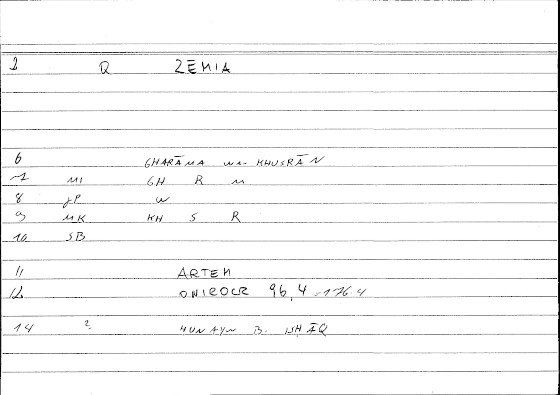 1 Q ZEMIA
6 GHARĀMA wa- KHUSRĀN
7 MI GH R M
8 JP W
9 MK KH S R
10 SB
11 ARTEM
12 ONIROCR 96,4 = 176.4
14 ? HUNAYN B. ISHĀQ